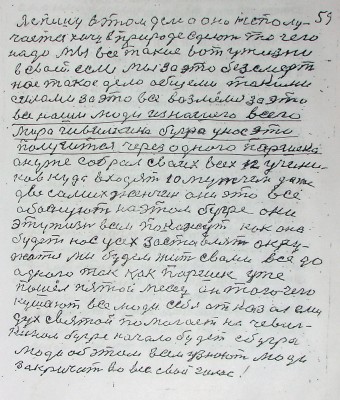 59
я спишу в этом дела а оно не полу-
чается хочу в природе сдают то чего
надо мы все такие вот у жизни
в своей если мы за это
ное такое дело общеми такими
силами за это все возмём за это
все наши люди из нашего всего
мира чивилкина бугра у нас это
получится через одного паришка
он уже собрал своих всех 12 учени-
ков куда входят 10 мужчин даже
две самих женчин они это всё
на этом бугре они
эту жизн всем покажут как она
будет нас усех заставлят окру-
жать мы будем жит свами все до
одного так как паршик уже
пошёл пятой месец он того чего
кушают все люди себя отказал ему
дух святой помогает на чевил-
кином бугре начало будет с бугра
люди об этом всем узнают люди
закричат во вес свой голос!